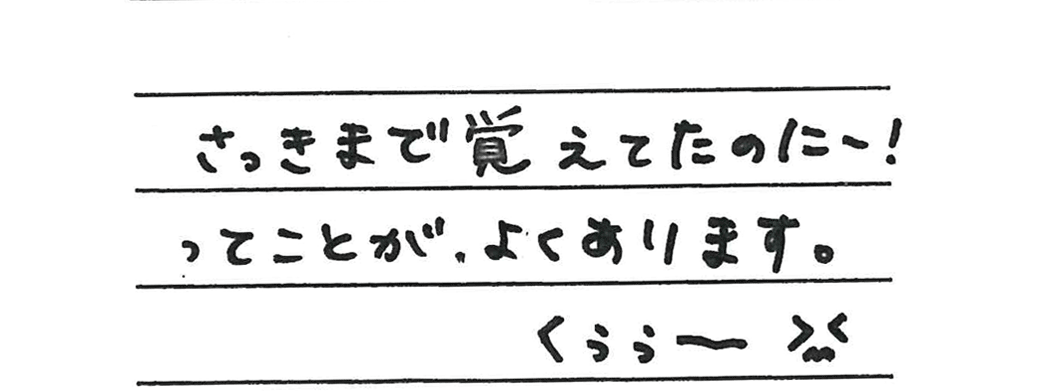 さっきまで覚えてたのに〜!
ってことが、よくあります。
くぅぅー >͟<